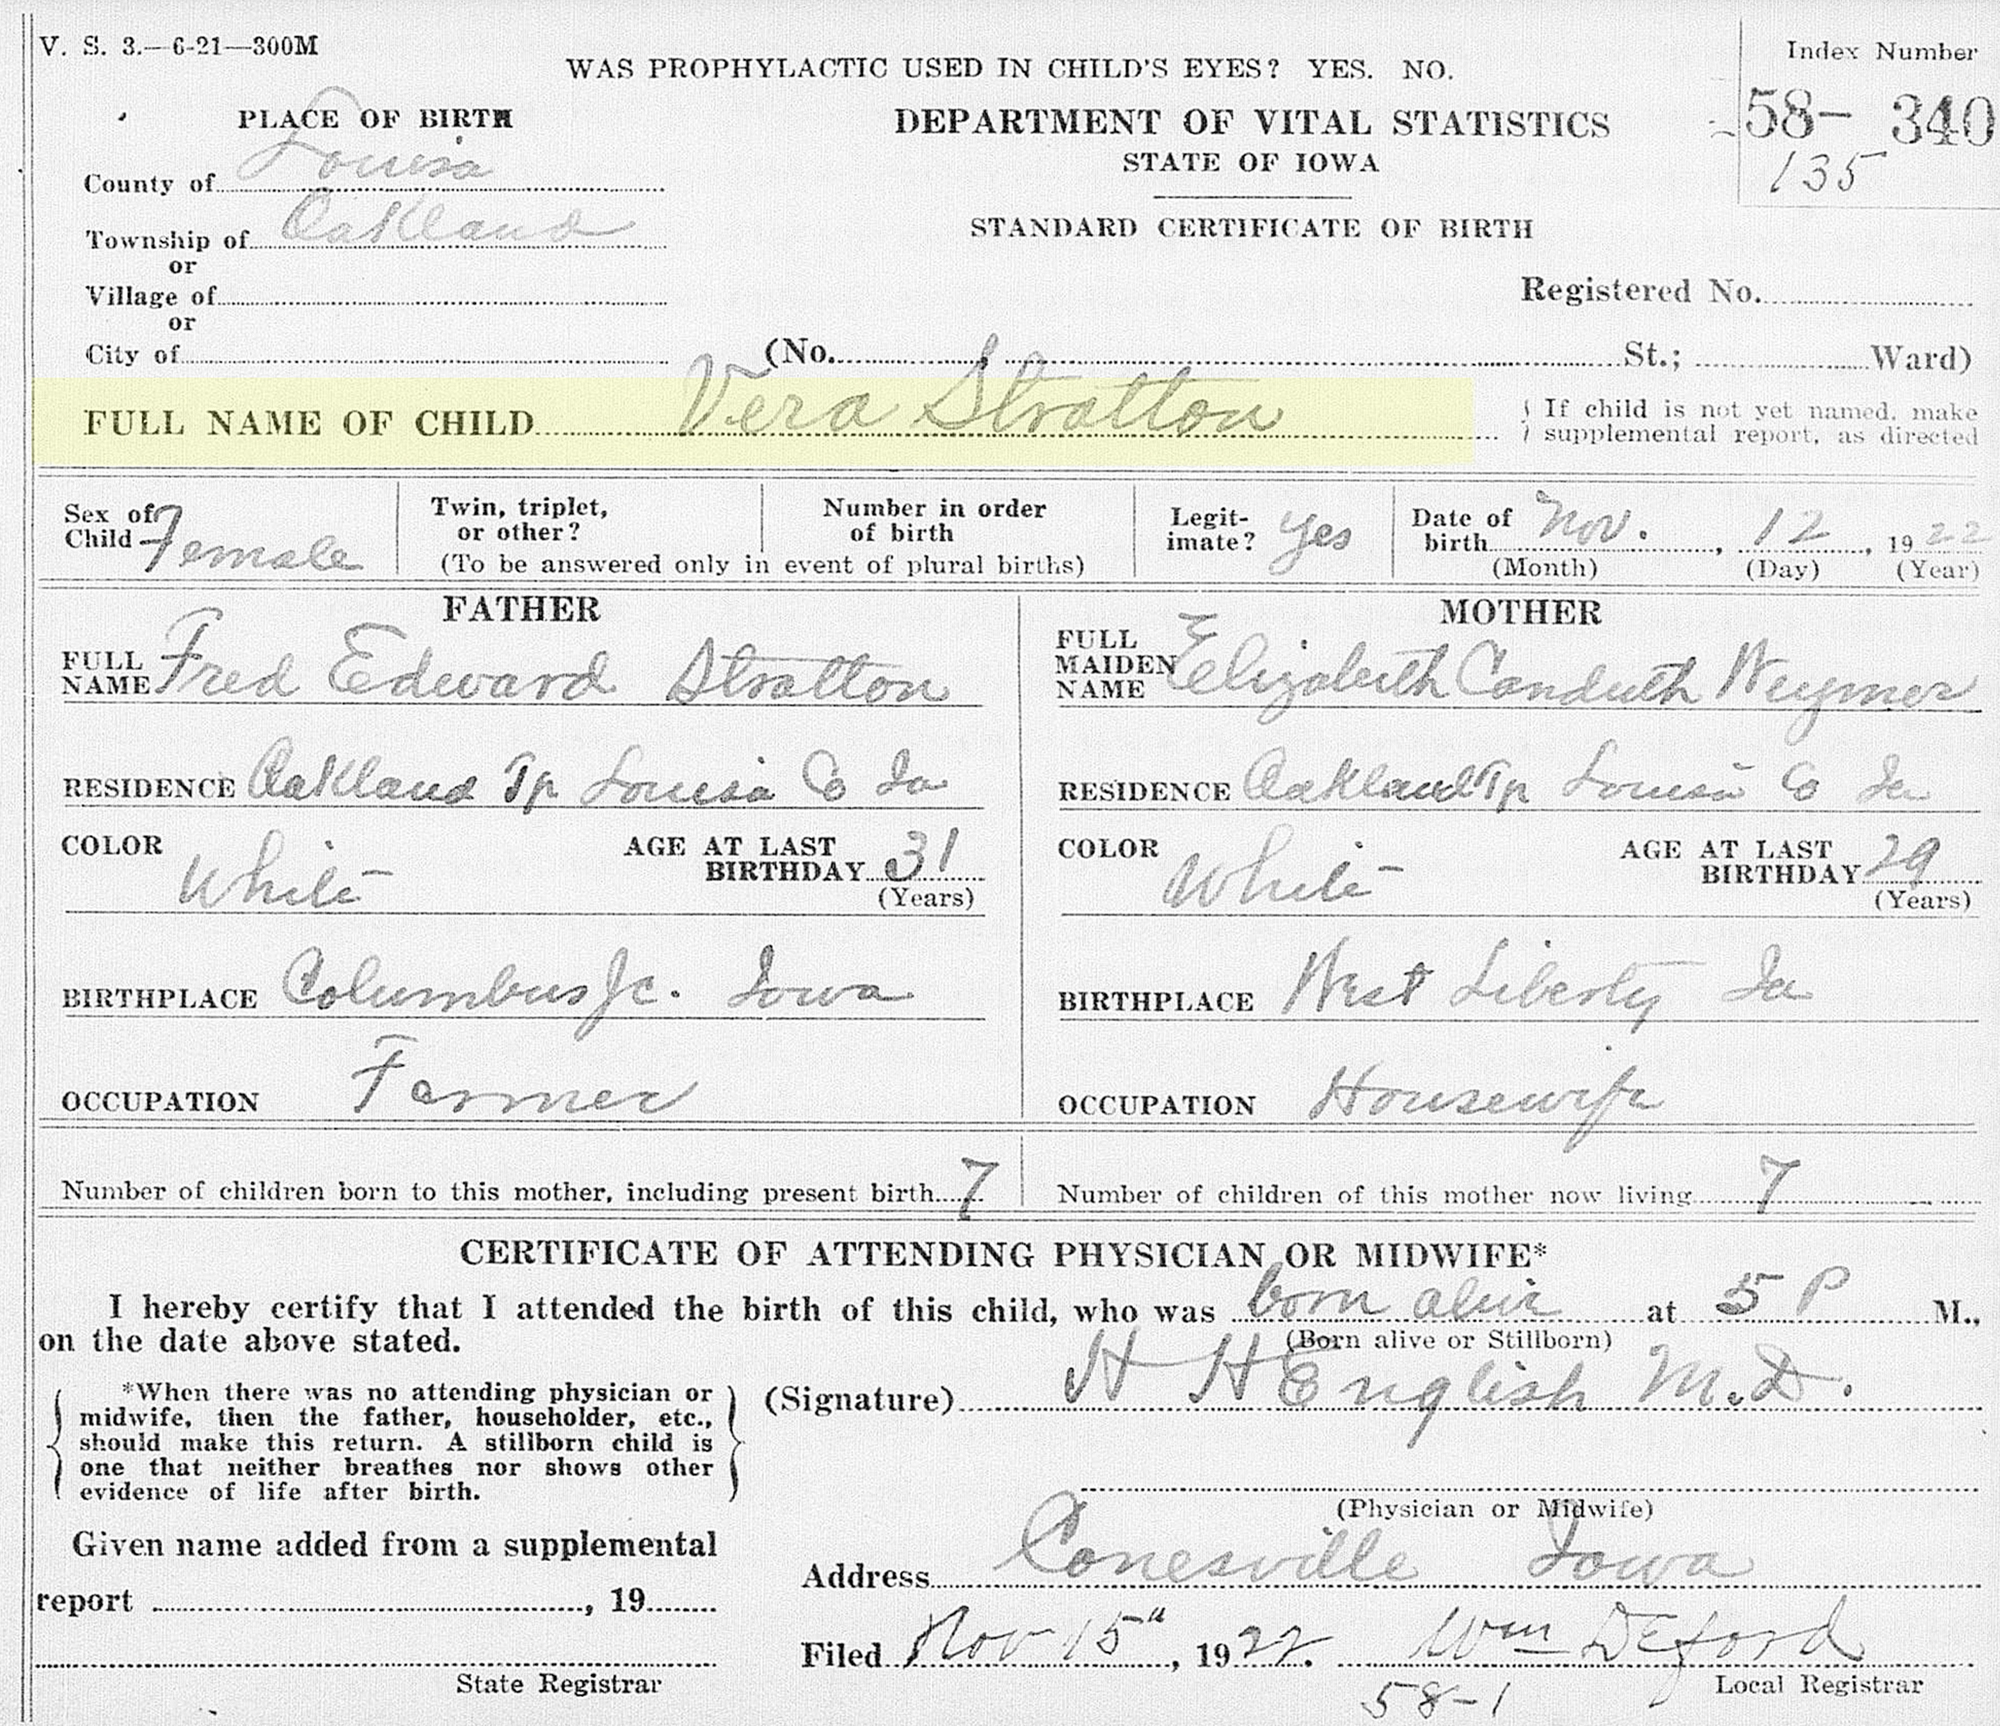 V. S. 3.—6-21—300M
Index Number
WAS PROPHYLACTIC USED IN CHILD'S EYES? YES. NO.
58- 340
135
PLACE OF BIRTH
DEPARTMENT OF VITAL STATISTICS
STATE OF IOWA
County of Louisa
Township of Oakland
STANDARD CERTIFICATE OF BIRTH
or
Village of
Registered No.
or
City of (No. St.; Ward)
FULL NAME OF CHILD Vera Stratton
If child is not yet named, make
supplemental report, as directed
Sex of
Child Female
Twin, triplet,
or other?
Number in order
of birth
(To be answered only in event of plural births)
Legit-
imate? Yes
Date of
birth Nov. , 12 , 1922
(Month) (Day) (Year)
FATHER
FULL
NAME Fred Edward Stratton
RESIDENCE Oakland Tp Louisa Co Ia
COLOR White
AGE AT LAST
BIRTHDAY 31
(Years)
BIRTHPLACE Columbus Jc. Iowa
OCCUPATION Farmer
MOTHER
FULL
MAIDEN
NAME Elizabeth Conduth Weymer
RESIDENCE Oakland Tp Louisa Co Ia
COLOR White
AGE AT LAST
BIRTHDAY 29
(Years)
BIRTHPLACE West Liberty Ia
OCCUPATION Housewife
Number of children born to this mother, including present birth 7
Number of children of this mother now living 7
CERTIFICATE OF ATTENDING PHYSICIAN OR MIDWIFE*
I hereby certify that I attended the birth of this child, who was born alive at 5 P M.,
(Born alive or Stillborn)
on the date above stated.
*When there was no attending physician or
midwife, then the father, householder, etc.,
should make this return. A stillborn child is
one that neither breathes nor shows other
evidence of life after birth.
(Signature) H H English M.D.
(Physician or Midwife)
Given name added from a supplemental
report , 19
State Registrar
Address Conesville Iowa
Filed Nov 15" , 1922. Wm Deford
Local Registrar
58-1